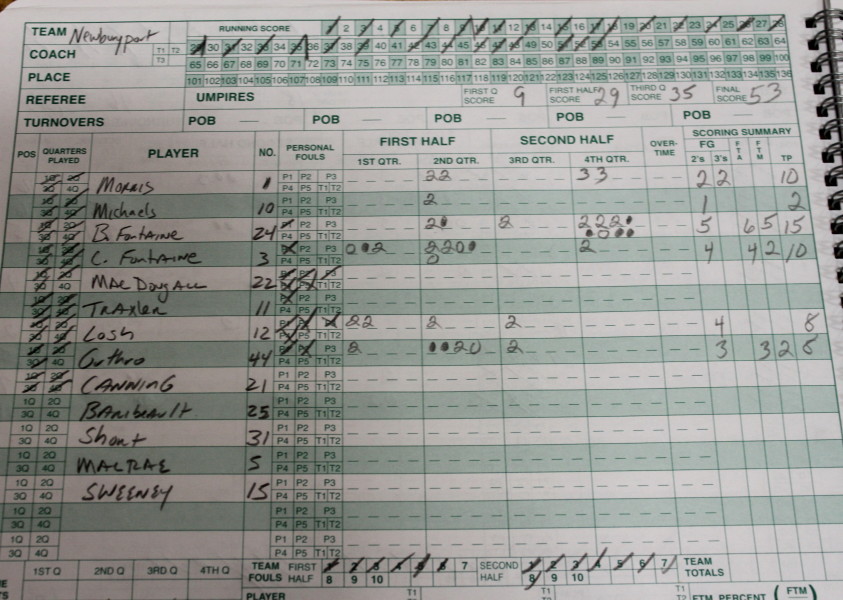 TEAM Newburyport RUNNING SCORE 1 2 3 4 5 6 7 8 9 10 11 12 13 14 15 16 17 18 19 20 21 22 23 24 25 26 27 28
COACH T1 T2 T3 29 30 31 32 33 34 35 36 37 38 39 40 41 42 43 44 45 46 47 48 49 50 51 52 53 54 55 56 57 58 59 60 61 62 63 64
65 66 67 68 69 70 71 72 73 74 75 76 77 78 79 80 81 82 83 84 85 86 87 88 89 90 91 92 93 94 95 96 97 98 99 100
PLACE 101 102 103 104 105 106 107 108 109 110 111 112 113 114 115 116 117 118 119 120 121 122 123 124 125 126 127 128 129 130 131 132 133 134 135 136
REFEREE UMPIRES FIRST Q SCORE 9 FIRST HALF SCORE 29 THIRD Q SCORE 35 FINAL SCORE 53
TURNOVERS POB — POB — POB — POB — POB —
POS QUARTERS PLAYED PLAYER NO. PERSONAL FOULS FIRST HALF SECOND HALF OVER-TIME SCORING SUMMARY
1ST QTR. 2ND QTR. 3RD QTR. 4TH QTR. FG 2's 3's FTA FTM TP
1Q 2Q 3Q 4Q Morris 1 P1 P2 P3 P4 P5 T1 T2 22 33 2 2 10
1Q 2Q 3Q 4Q Michaels 10 P1 P2 P3 P4 P5 T1 T2 2 1 2
1Q 2Q 3Q 4Q B. Fontaine 24 P1 P2 P3 P4 P5 T1 T2 2 2 222 5 6 5 15
1Q 2Q 3Q 4Q C. Fontaine 3 P1 P2 P3 P4 P5 T1 T2 2 220 2 4 4 2 10
1Q 2Q 3Q 4Q MacDougall 22 P1 P2 P3 P4 P5 T1 T2
1Q 2Q 3Q 4Q Traxler 11 P1 P2 P3 P4 P5 T1 T2
1Q 2Q 3Q 4Q Losh 12 P1 P2 P3 P4 P5 T1 T2 22 2 2 4 8
1Q 2Q 3Q 4Q Guthro 44 P1 P2 P3 P4 P5 T1 T2 2 20 2 3 3 2 8
1Q 2Q 3Q 4Q CANNING 21 P1 P2 P3 P4 P5 T1 T2
1Q 2Q 3Q 4Q Baribeault 25 P1 P2 P3 P4 P5 T1 T2
1Q 2Q 3Q 4Q Short 31 P1 P2 P3 P4 P5 T1 T2
1Q 2Q 3Q 4Q MACRAE 5 P1 P2 P3 P4 P5 T1 T2
1Q 2Q 3Q 4Q SWEENEY 15 P1 P2 P3 P4 P5 T1 T2
1Q 2Q 3Q 4Q P1 P2 P3 P4 P5 T1 T2
1Q 2Q 3Q 4Q P1 P2 P3 P4 P5 T1 T2
1ST Q 2ND Q 3RD Q 4TH Q TEAM FOULS FIRST HALF 1 2 3 4 5 6 7 8 9 10 SECOND HALF 1 2 3 4 5 6 7 8 9 10 TEAM TOTALS
PLAYER T1 T1 T1 T2 FTM PERCENT ( FTM